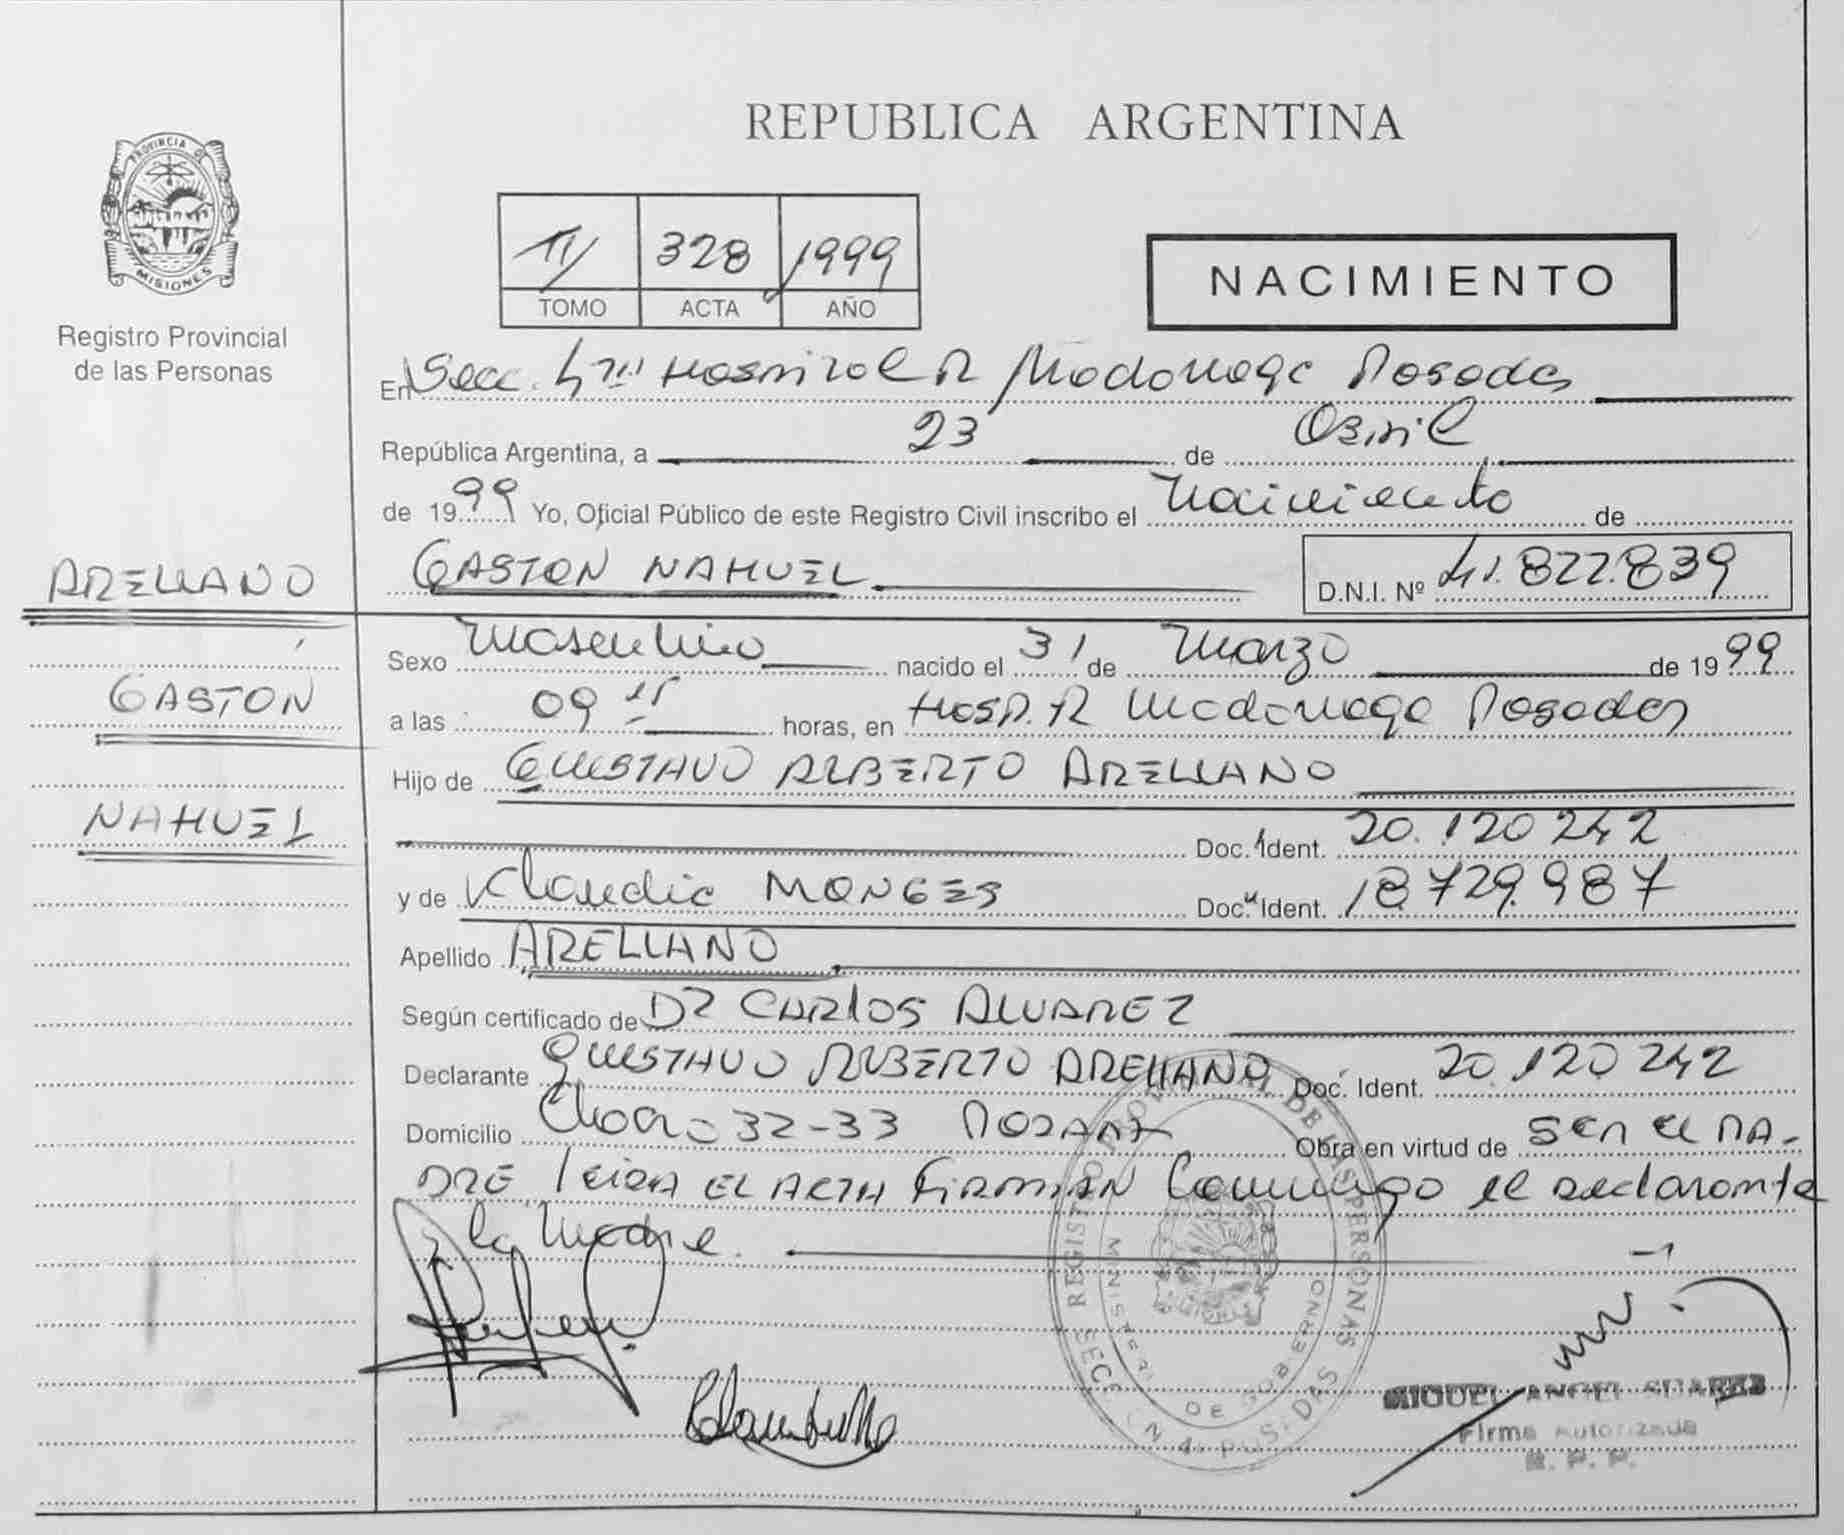 PROVINCIA DE
MISIONES
Registro Provincial
de las Personas
REPUBLICA ARGENTINA
328 1999
TOMO ACTA AÑO
NACIMIENTO
En Secc. 4ta Hospital R Madariaga Posadas
República Argentina, a 23 de Abril
de 1999 Yo, Oficial Público de este Registro Civil inscribo el Nacimiento de
ARELLANO
GASTON NAHUEL
D.N.I. Nº 41.822.839
Sexo Masculino nacido el 31 de Marzo de 1999
GASTON
a las 09 horas, en Hosp. R Madariaga Posadas
Hijo de GUSTAVO ALBERTO ARELLANO
NAHUEL
Doc. Ident. 20.120 242
y de Klaudia MONGES Doc. Ident. 18.729.987
Apellido ARELLANO
Según certificado de Dr CARLOS ALVAREZ
Declarante GUSTAVO ALBERTO ARELLANO Doc. Ident. 20.120 242
Domicilio 32-33 Obra en virtud de SER EL PA-
DRE leida EL ACTA FIRMAN Conmigo el declarante
y la Madre.
REGISTRO PROVINCIAL DE LAS PERSONAS
MINISTERIO DE GOBIERNO
MIGUEL ANGEL SUAREZ
Firma Autorizada
R. P. P.